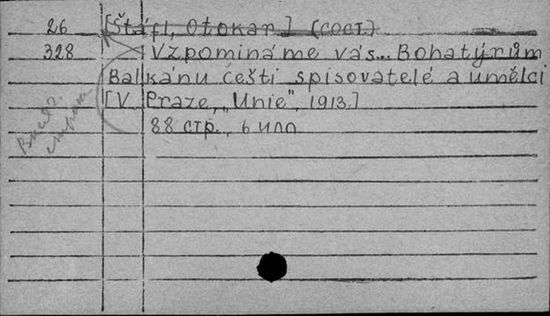 26 [Štáfl, Otokar] (сост.)
328 Vzpomináme vás... Bohatýrům
Balkánu čeští spisovatelé a umělci
[V Praze, „Unie", 1913.]
88 стр., 6 илл